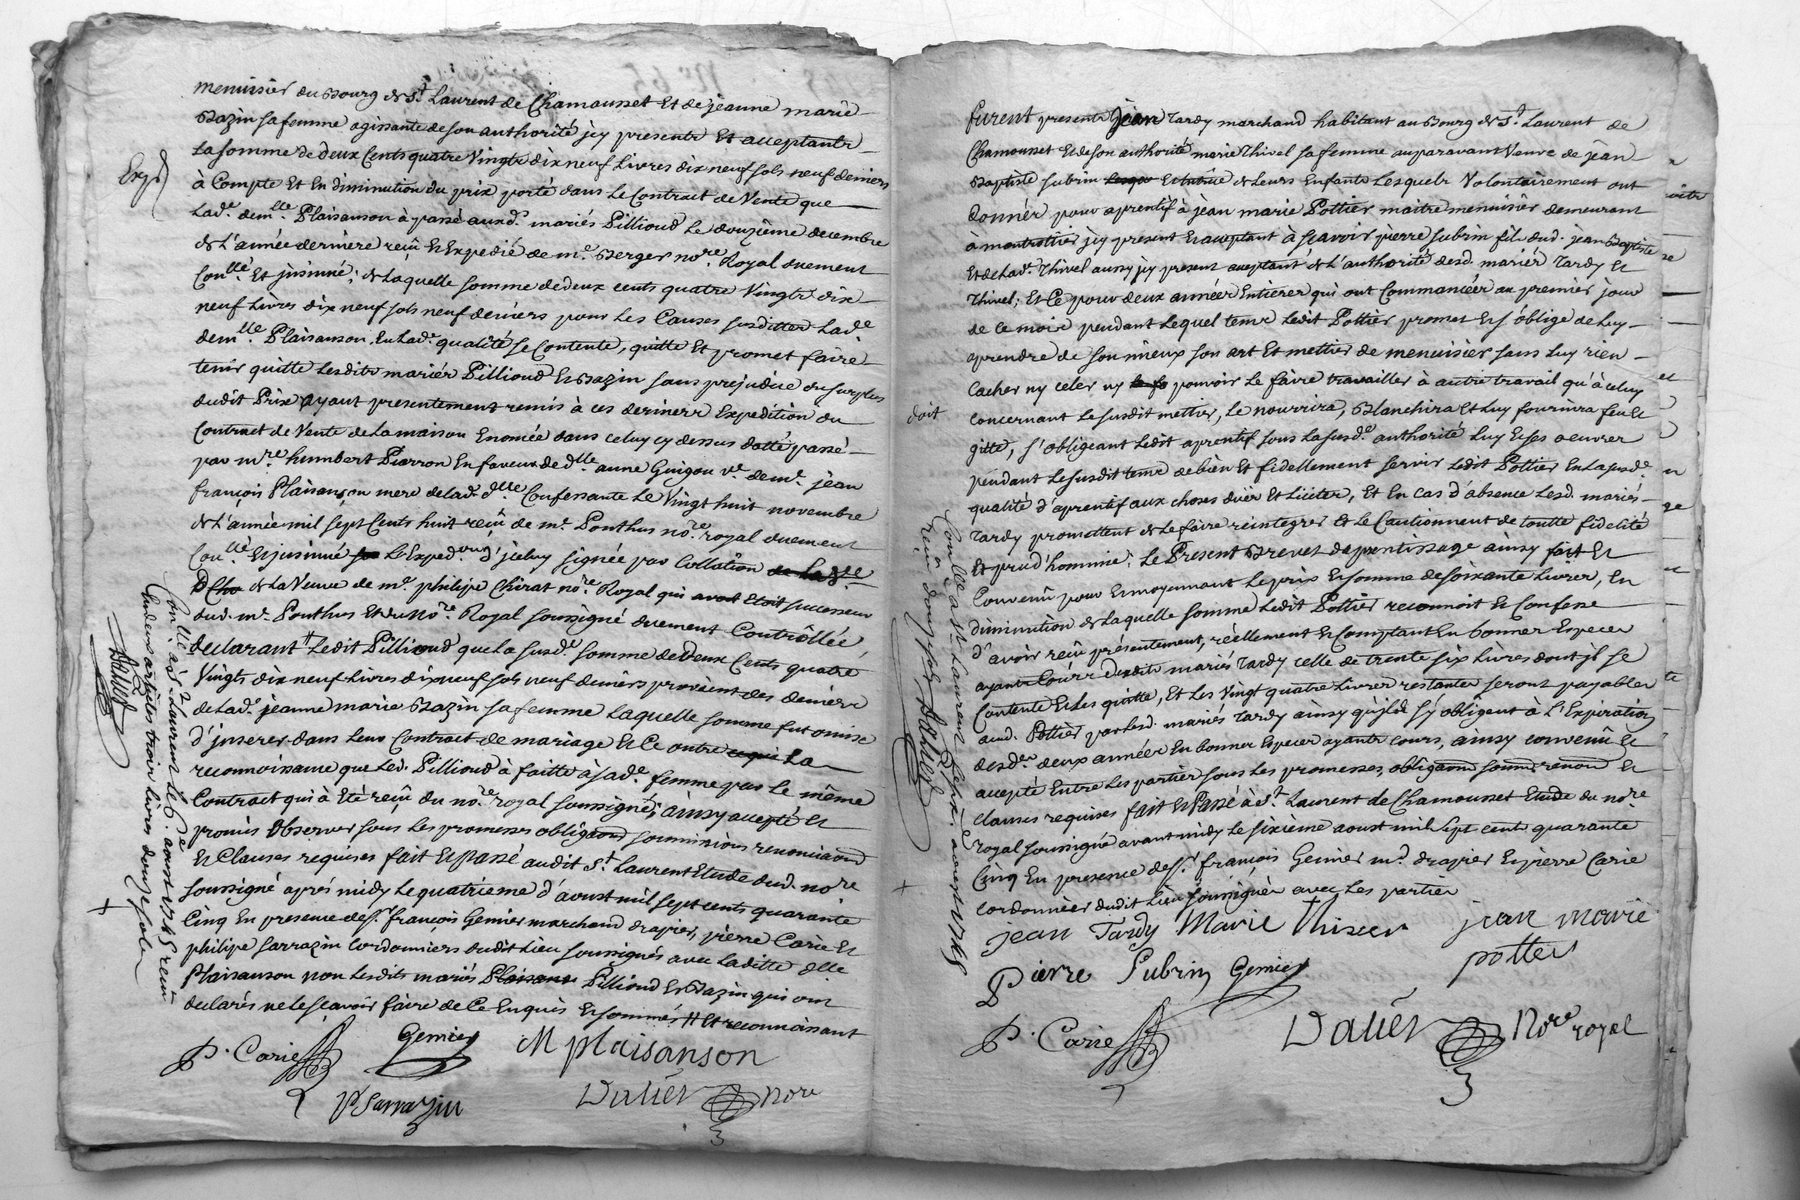 menuisier du Bourg de St. Laurent de Chamousset et de jeanne marie
Bazin sa femme agissante de son authorité jcy presente et acceptante
La somme de deux Cents quatre Vingts dix neuf Livres dix neuf sols neuf deniers
à Compte et en diminution du prix porté dans Le Contract de Vente que
Lade. demlle. Plaisanson à passé auxd. mariés Pillioud Le douzième decembre
de L'année derniere reçû et Expedié de me. Berger nore. Royal duement
Conllé. Et jnsinué; de Laquelle somme de deux cents quatre Vingts dix
neuf Livres dix neuf sols neuf deniers pour Les Causes susdittes Lade.
demlle. Plaisanson En Lade. qualité se Contente, quitte Et promet faire
tenir quitte Lesdits mariés Pillioud et Bazin sans prejudice du surplus
dudit Prix ayant presentement remis à ces derniers Expedition du
Contract de Vente de La maison Enoncée dans celuy cy dessus datté passé
par mre. humbert Pierron En faveur de dlle. anne Guigou ve. de me. jean
françois Plaisanson mere de lade. dlle. Confessante Le Vingt huit novembre
de L'année mil sept Cents huit reçû de me. Ponthus nore. royal duement
Conllé. et jnsinué L'Expedon. d'jceluy signée par Collation
de La Veuve de me. philipe Chirat nore. Royal qui avoit Etoit successeur
dud. me. Ponthus Et du Nore. Royal soussigné duement Contrôllée,
declarant # Ledit Pillioud que La susde. somme de Deux Cents quatre
Vingts dix neuf Livres dix neuf sols neuf deniers provient des deniers
de Lade. jeanne marie Bazin sa femme Laquelle somme fut omise
d'jnserer dans Leur Contract de mariage et Ce outre ce qui La
reconnoissance que Led. Pillioud à faitte à sade. femme par Le même
Contract qui à Eté reçû du nore. royal soussigné; ainsy accepté et
promis Observer sous Les promesses obligaons soumissions renonciaons
et Clauses requises fait et Passé audit St. Laurent Etude dud. nore.
soussigné aprés midy Le quatrieme d'aoust mil sept cents quarante
Cinq En presence de sr. françois Gemier marchand drapier, pierre Carie et
philipe sarrazin Cordonniers dudit Lieu soussignés avec Laditte dlle
Plaisanson non Lesdits mariés Pillioud et Bazin qui ont
declarés ne Le scavoir faire de Ce Enquis et sommés # et reconnoissant
P. Carie
Gemier
M plaisanson
P Sarrazin
Dalier nore
Expé
Conllé. à St. Laurent Le 6e. aoust 1745 reçû
En deux articles trois Livres douze sols
Dalier
furent presents jean Tardy marchand habitant au Bourg de St. Laurent de
Chamousset Et de son authorité marie Thivel sa femme auparavant Veuve de jean
Baptiste subrin de Leurs Enfants Lesquels Volontairement ont
donnés pour aprentif à jean marie Pottier maitre menuisier demeurant
à montrottier jcy present et acceptant à scavoir pierre subrin fils dud. jean Baptiste
Et de Lad. Thivel aussy jcy present acceptant de L'authorité desd. mariés Tardy et
Thivel; Et Ce pour deux années Entieres qui ont Commancées au premier jour
de ce mois pendant Lequel tems Ledit Pottier promet et s'oblige de Luy
aprendre de son mieux son art Et mettier de menuisier sans Luy rien
Cacher ny celer ny pouvoir Le faire travailler à autre travail qu'à celuy
concernant Le susdit mettier, Le nourrira, Blanchira Et Luy fournira feu et
gitte, s'obligeant Ledit aprentif sous La susde. authorité Luy et ses oeuvres
pendant Le susdit tems de bien Et fidellement servir Ledit Pottier En La susde.
qualité d'aprentif aux choses duës Et Liicites, Et En cas d'absence Lesd. mariés
Tardy promettent de Le faire reintegrer Et Le Cautionnent de toutte fidelité
Et prud'hommie. Le Present Brevet d'aprentissage ainsy fait et
Convenû pour et moyennant Le prix et somme de soixante Livres, En
diminution de Laquelle somme Ledit Pottier reconnoit et Confesse
d'avoir reçû présentement, réellement et Comptant En bonnes Especes
ayants Cours Desdits mariés Tardy celle de trente six Livres dont jl se
Contente et Les quitte, Et Les Vingt quatre Livres restantes seront payables
aud. Pottier par Lesd. mariés Tardy ainsy qu'jls s'y obligent à L'Expiration
desdes. deux années En bonnes Especes ayants cours, ainsy convenû et
accepté Entre Les parties sous Les promesses, obligaons soumis. renons et
clauses requises fait et Passé à St. Laurent de Chamousset Etude du nore.
royal soussigné avant midy Le sixième aoust mil sept cents quarante
Cinq En presence de sr. françois Gemier md. drapier et pierre Carie
cordonniers dudit Lieu soussignés avec Les parties
jean Tardy Marie thivel jean marie
pottier
Pierre Subrin Gemier
P. Carie
Dalier Nore royal
doit
Conllé à St. Laurent Le 6e. aoust 1745
reçû douze sols Dalier